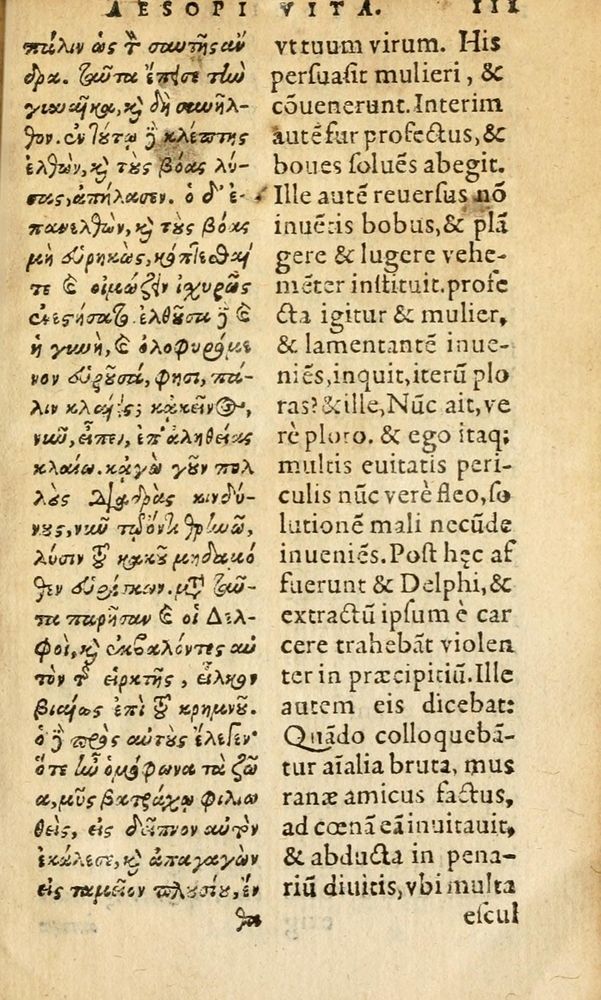 AESOPI VITA. III
πάλιν ὡς τ̃ σαυτῆς ἄν
δρα. ταῦτα ἔπεισε τὴν
γυναῖκα, καὶ δὴ συνῆλ-
θον. ἐν τούτῳ δὲ κλέπτης
ἐλθὼν, καὶ τοὺς βόας λύ-
σας, ἀπήλασεν. ὁ δ' ἐ-
πανελθὼν, καὶ τοὺς βόας
μὴ εὑρηκὼς, κόπτεσθαί
τε καὶ οἰμώζειν ἰσχυρῶς
ἐνεστήσατο. ἐλθοῦσα δὲ καὶ
ἡ γυνὴ, καὶ ὀλοφυρόμε
νον εὑροῦσα, φησι, πά-
λιν κλαίεις; κἀκεῖνος,
νῦν, εἶπεν, ἐπ' ἀληθείας
κλαίω. κἀγὼ γοῦν πολ
λοὺς διαδρὰς κινδύ-
νους, νῦν τῷ ὄντι θρηνῶ,
λύσιν τοῦ κακοῦ μηδαμό
θεν εὑρίσκων. μετὰ ταῦ-
τα παρῆσαν καὶ οἱ Δελ-
φοὶ, καὶ ἐκβαλόντες αὐ
τὸν τῆς εἱρκτῆς, εἷλκον
βιαίως ἐπὶ τοῦ κρημνοῦ.
ὁ δὲ πρὸς αὐτοὺς ἔλεγεν·
ὅτε ἦν ὁμόφωνα τὰ ζῶ
α, μῦς βατράχῳ φιλιω
θεὶς, εἰς δεῖπνον αὐτὸν
ἐκάλεσε, καὶ ἀπαγαγὼν
εἰς ταμεῖον πλουσίου, ἔν
θα
vt tuum virum. His
persuasit mulieri, &
cōuenerunt. Interim
autē fur profectus, &
boues soluēs abegit.
Ille autē reuersus nō
inuētis bobus, & plā
gere & lugere vehe-
mēter instituit. profe
cta igitur & mulier,
& lamentantē inue-
niēs, inquit, iterū plo
ras? & ille, Nūc ait, ve
rè ploro. & ego itaq;
multis euitatis peri-
culis nūc verè fleo, so
lutionē mali necūde
inueniēs. Post hęc af
fuerunt & Delphi, &
extractū ipsum è car
cere trahebāt violen
ter in præcipitiū. Ille
autem eis dicebat:
Quādo colloquebā-
tur aīalia bruta, mus
ranæ amicus factus,
ad cœnā eā inuitauit,
& abducta in pena-
riū diuitis, vbi multa
escul